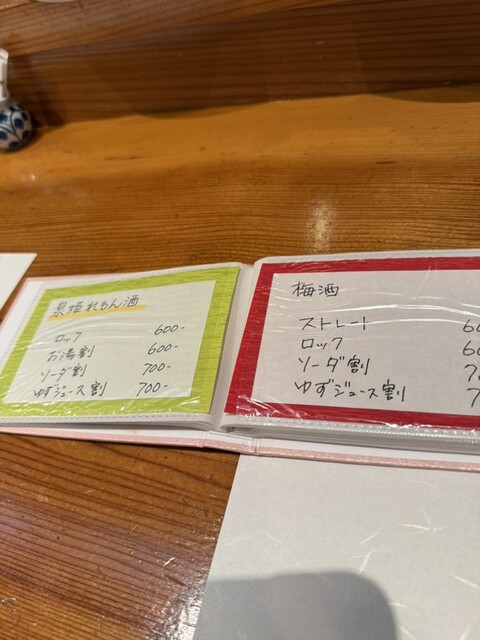 泉姫れもん酒
ロック 600-
お湯割 600-
ソーダ割 700-
ゆずジュース割 700-
梅酒
ストレート 60
ロック 60
ソーダ割 70
ゆずジュース割 7